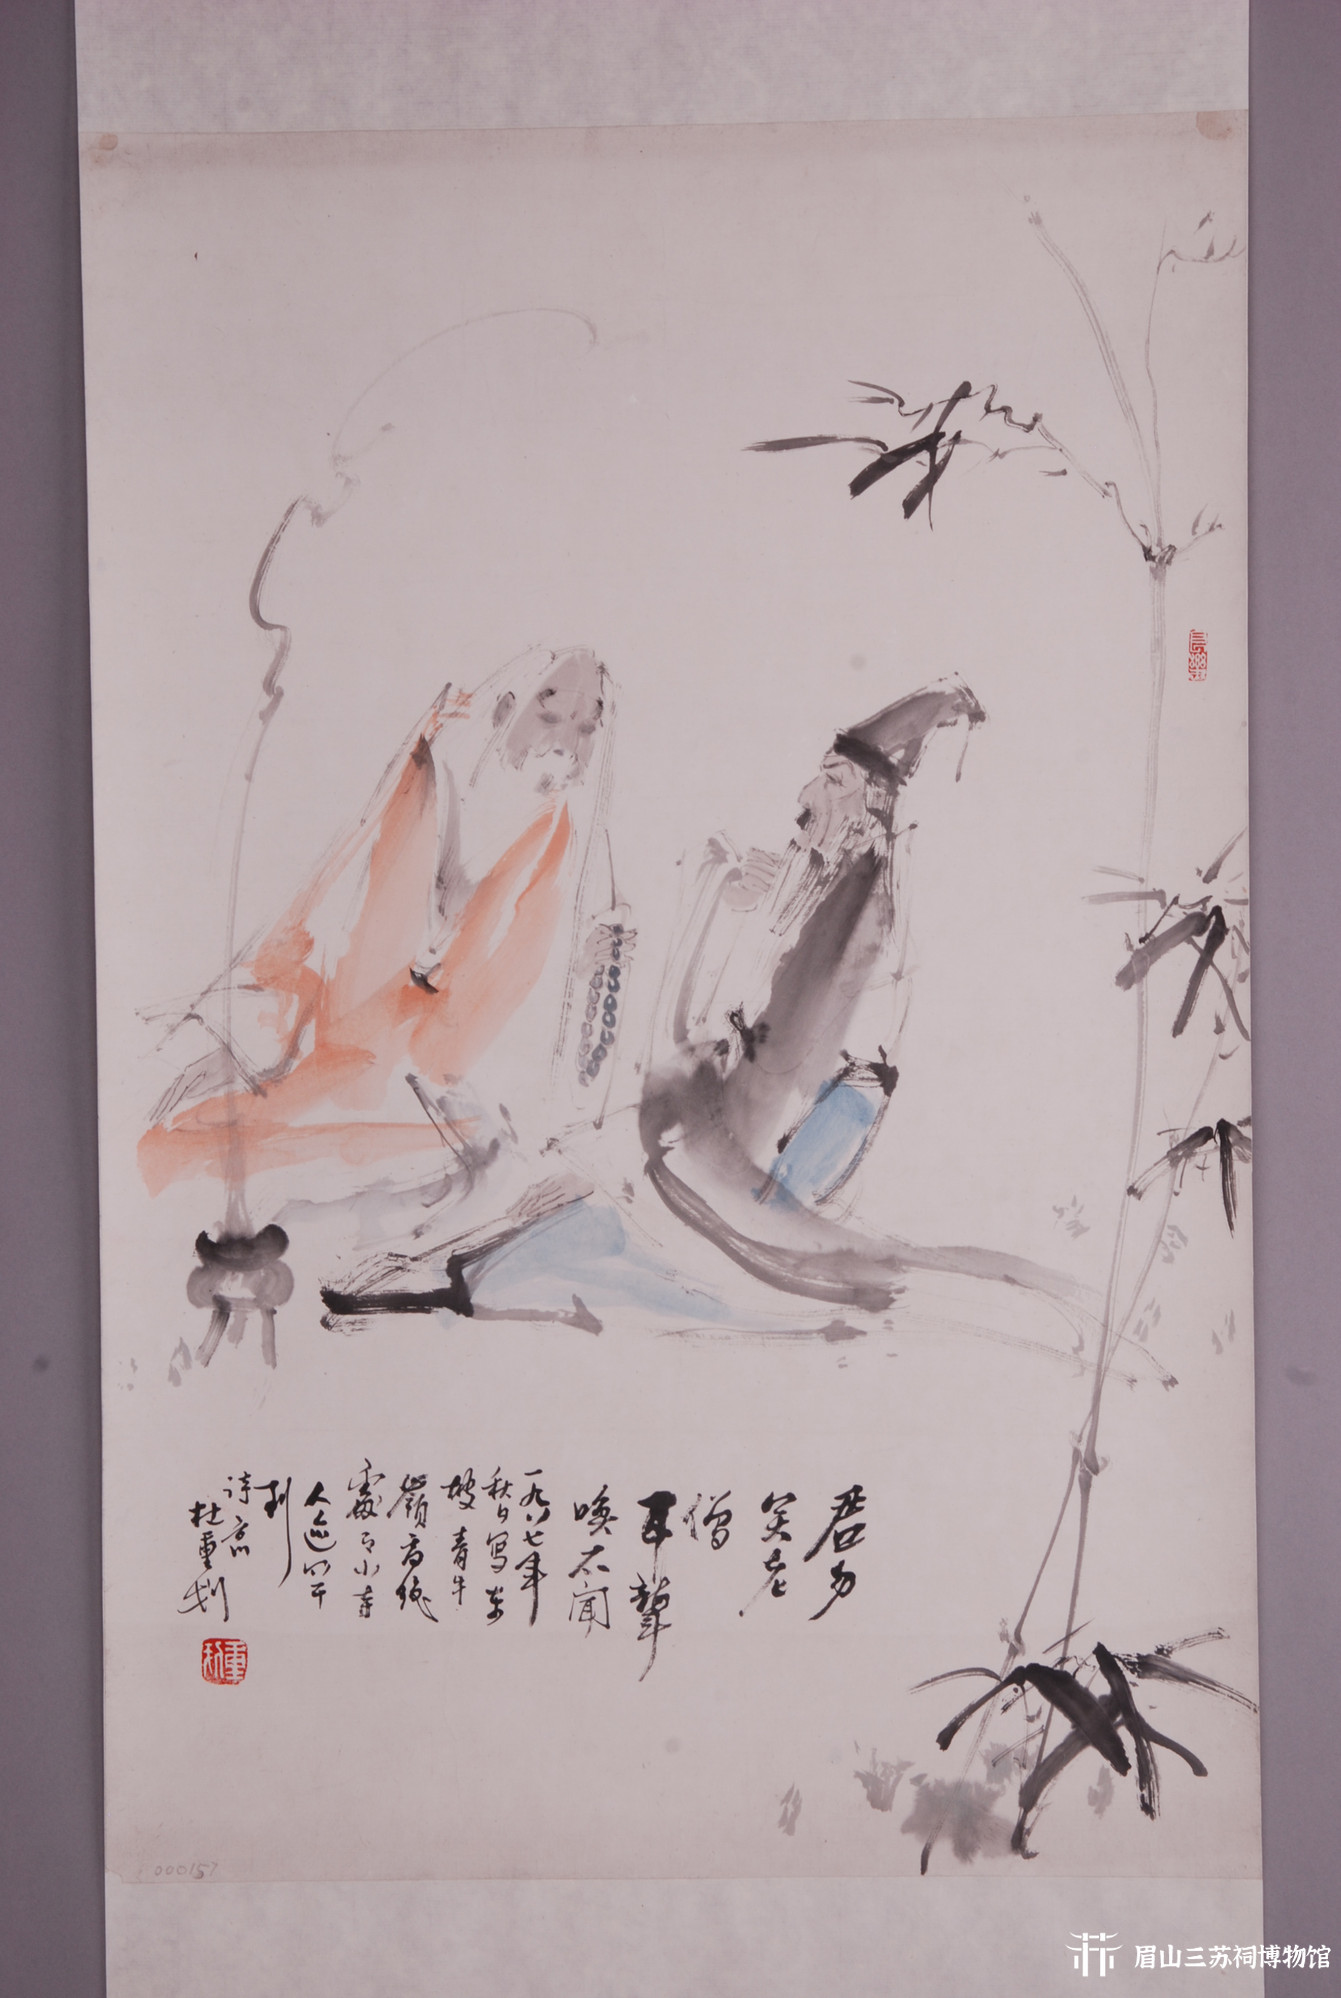 君勿
笑老
僧
耳聋
唤不闻
一九八七年
秋日写東
坡青牛
嶺高绝
處有小寺
人迹罕
到
诗意
杜重划
重划
000157
眉山三苏祠博物馆